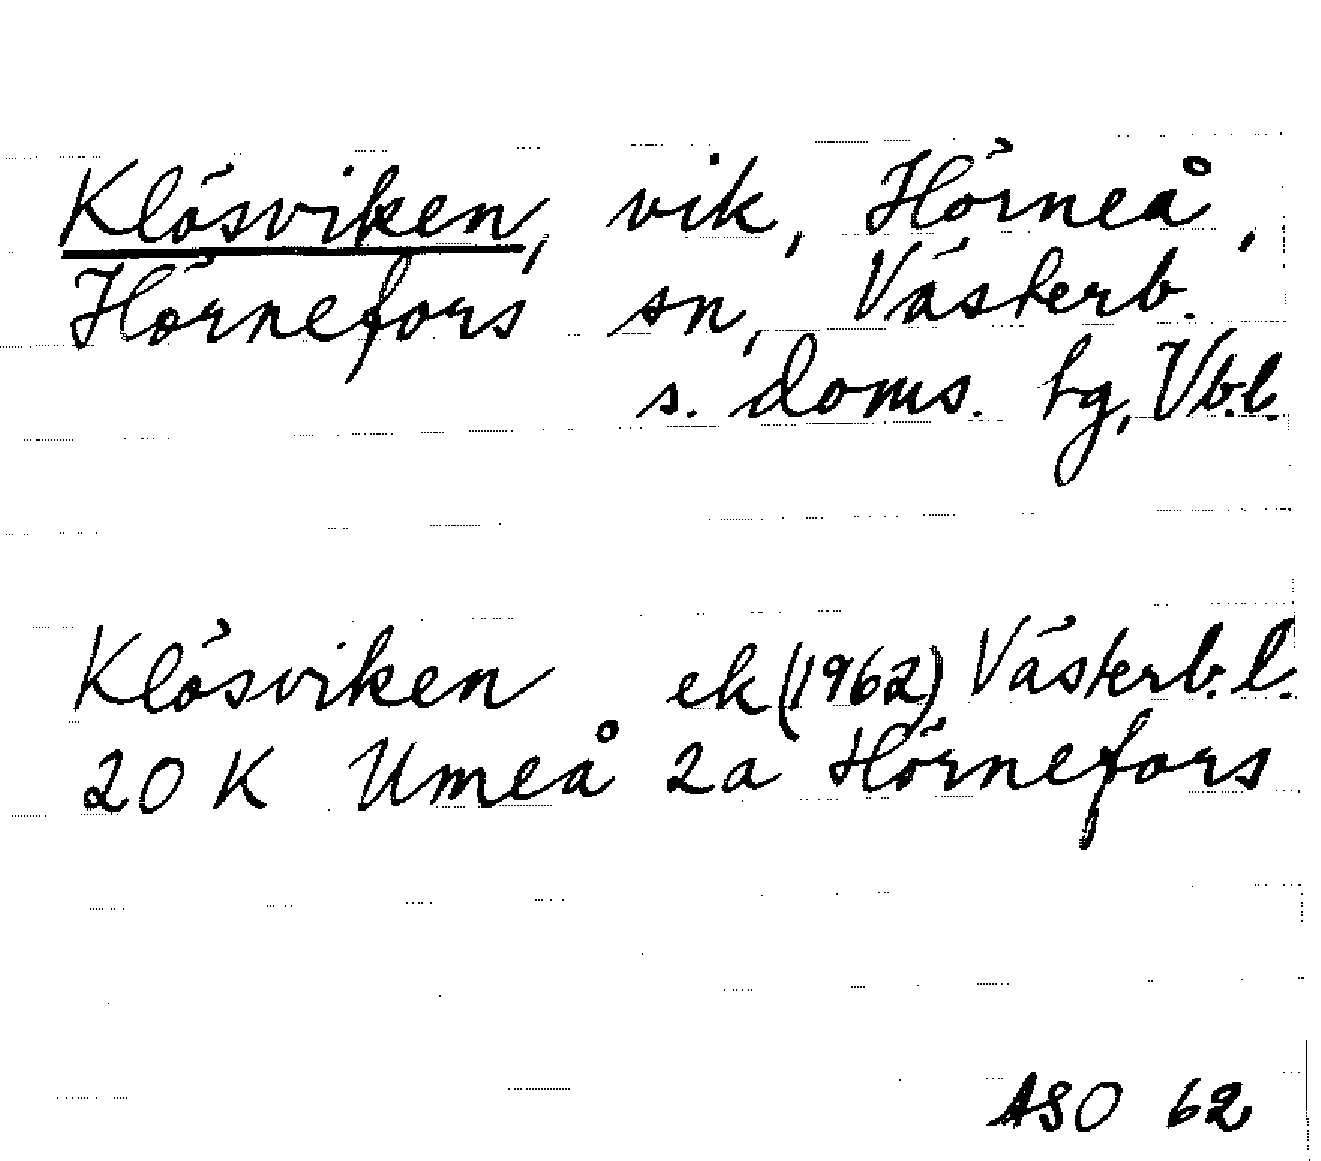 Klösviken, vik, Hörneå,
Hörnefors sn, Västerb.
s. doms. tg, Vb.l.
Klösviken ek (1962) Västerb. l.
20 K Umeå 2a Hörnefors
ASO 62